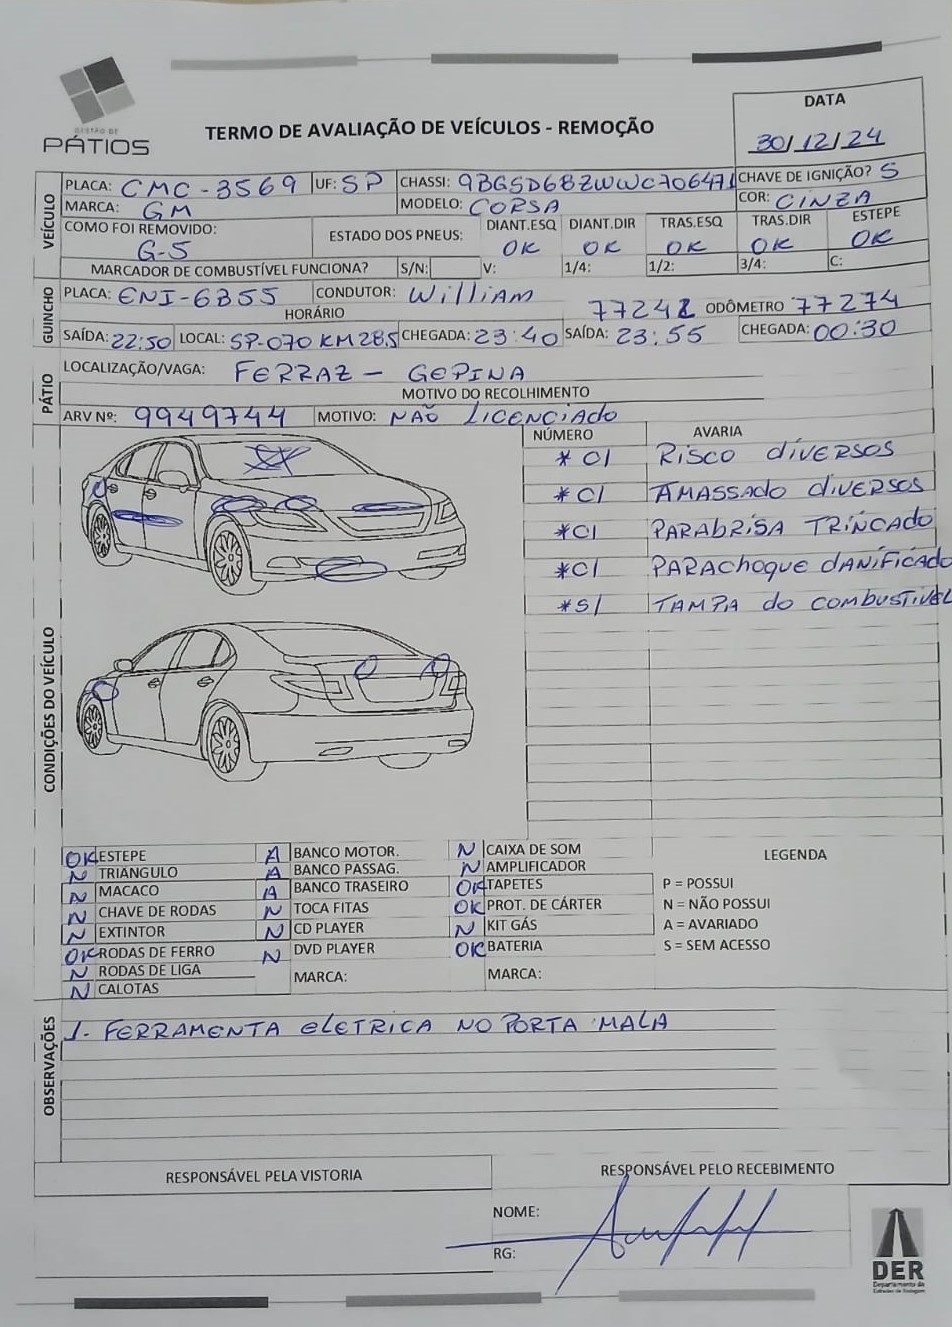 GESTÃO DE
PÁTIOS
TERMO DE AVALIAÇÃO DE VEÍCULOS - REMOÇÃO
DATA
30/12/24
VEÍCULO
PLACA: CMC-3569 UF: SP CHASSI: 9BGSD68ZWWC706471 CHAVE DE IGNIÇÃO? S
MARCA: GM MODELO: CORSA COR: CINZA
COMO FOI REMOVIDO: G-5 ESTADO DOS PNEUS: DIANT.ESQ OK DIANT.DIR OK TRAS.ESQ OK TRAS.DIR OK ESTEPE OK
MARCADOR DE COMBUSTÍVEL FUNCIONA? S/N: V: 1/4: 1/2: 3/4: C:
GUINCHO
PLACA: ENI-6B55 CONDUTOR: William
HORÁRIO 77242 ODÔMETRO 77274
SAÍDA: 22:50 LOCAL: SP-070 KM 28,5 CHEGADA: 23:40 SAÍDA: 23:55 CHEGADA: 00:30
PÁTIO
LOCALIZAÇÃO/VAGA: FERRAZ - GEPINA
MOTIVO DO RECOLHIMENTO
ARV Nº: 9949744 MOTIVO: NÃO LICENCIADO
CONDIÇÕES DO VEÍCULO
NÚMERO AVARIA
*C/ RISCO diVERSOS
*C/ AMASSADO diVERSOS
*C/ PARAbRiSA TRiNCADO
*C/ PARAChOQUE dANiFiCADO
*S/ TAMPA do COMBUSTiVEL
OK ESTEPE A BANCO MOTOR. N CAIXA DE SOM LEGENDA
N TRIÂNGULO A BANCO PASSAG. N AMPLIFICADOR
N MACACO A BANCO TRASEIRO OK TAPETES P = POSSUI
N CHAVE DE RODAS N TOCA FITAS OK PROT. DE CÁRTER N = NÃO POSSUI
N EXTINTOR N CD PLAYER N KIT GÁS A = AVARIADO
OK RODAS DE FERRO N DVD PLAYER OK BATERIA S = SEM ACESSO
N RODAS DE LIGA MARCA: MARCA:
N CALOTAS
OBSERVAÇÕES
1- FERRAMENTA ELETRICA NO PORTA MALA
RESPONSÁVEL PELA VISTORIA RESPONSÁVEL PELO RECEBIMENTO
NOME:
RG:
DER
Departamento de
Estradas de Rodagem